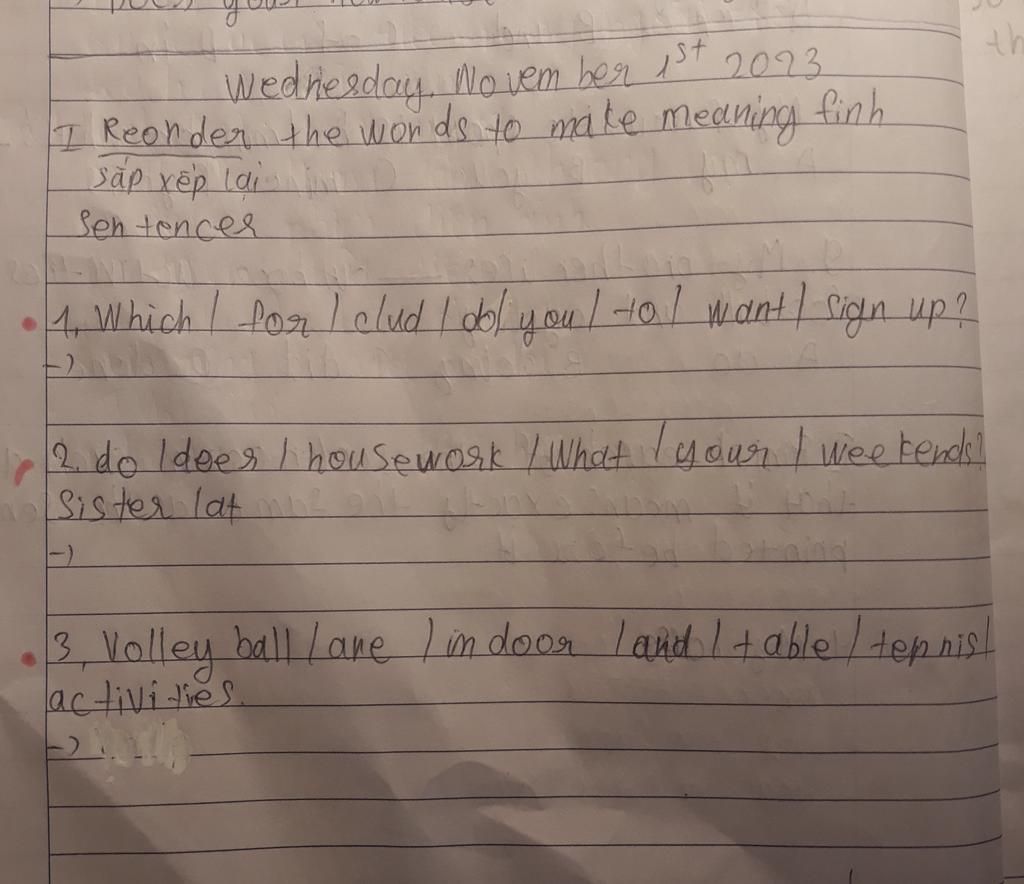 Wednesday, November 1st 2023
I Reorder the words to make meaning finh
sắp xếp lại
Sentences
1, Which / for / clud / do / you / to / want / sign up?
->
2. do / does / housework / What / your / weekends?
Sister / at
->
3, Volley ball / are / indoor / and / table / tennis /
activities.
->